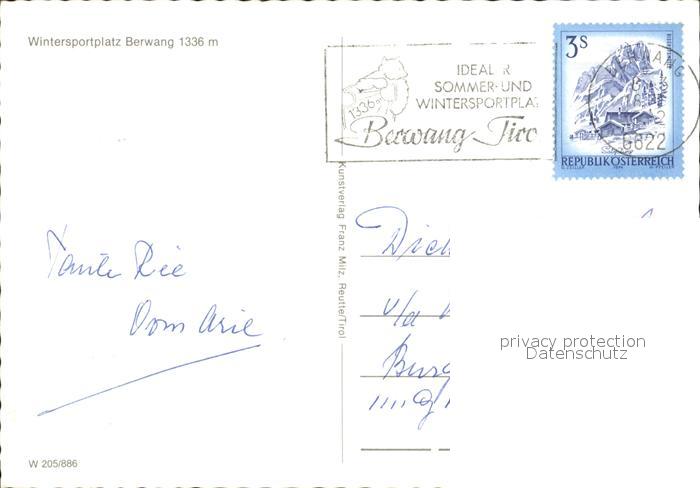 Wintersportplatz Berwang 1336 m
1336 m
IDEALER
SOMMER- UND
WINTERSPORTPLA
Berwang Tiro
3S
BERWANG
6622
REPUBLIK ÖSTERREICH
Kunstverlag Franz Milz, Reutte/Tirol
Tante Rie
Oom Arie
Dick
v/d
Burg
privacy protection
Datenschutz
W 205/886